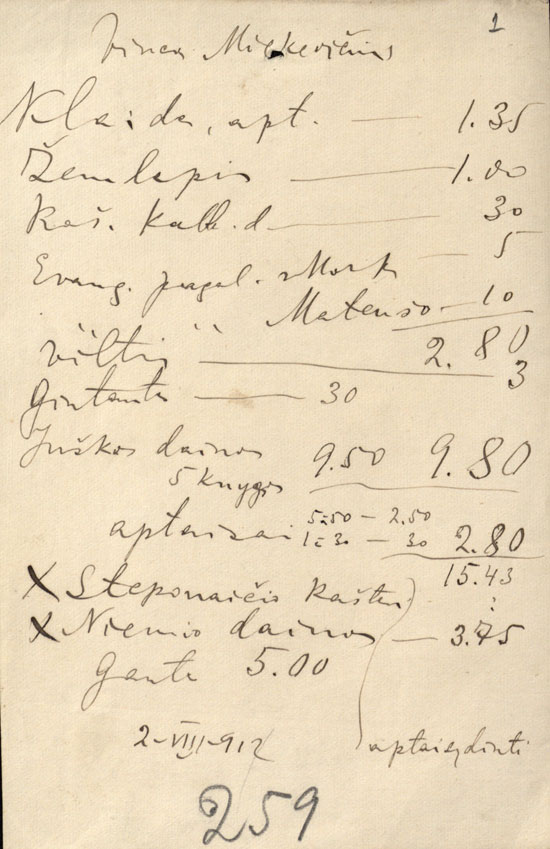 1
Vincas Mickevičius
Klaida, apt. — 1.35
Žemlapis — 1.00
Raš. Kalb. d — 30
Evang. pagal. Mork — 5
" " Mateušo — 10
2.80
Viltis — 3
Gintautė — 30
Juškos dainos 9.50 9.80
5 knygos
aptaisai 5=50 — 2.50
1=30 — 30 2.80
15.43
X Steponaičio Raštai :
X Niemio dainos — 3.75
Gauta 5.00
2-VIII-912 aptaisydinti
259